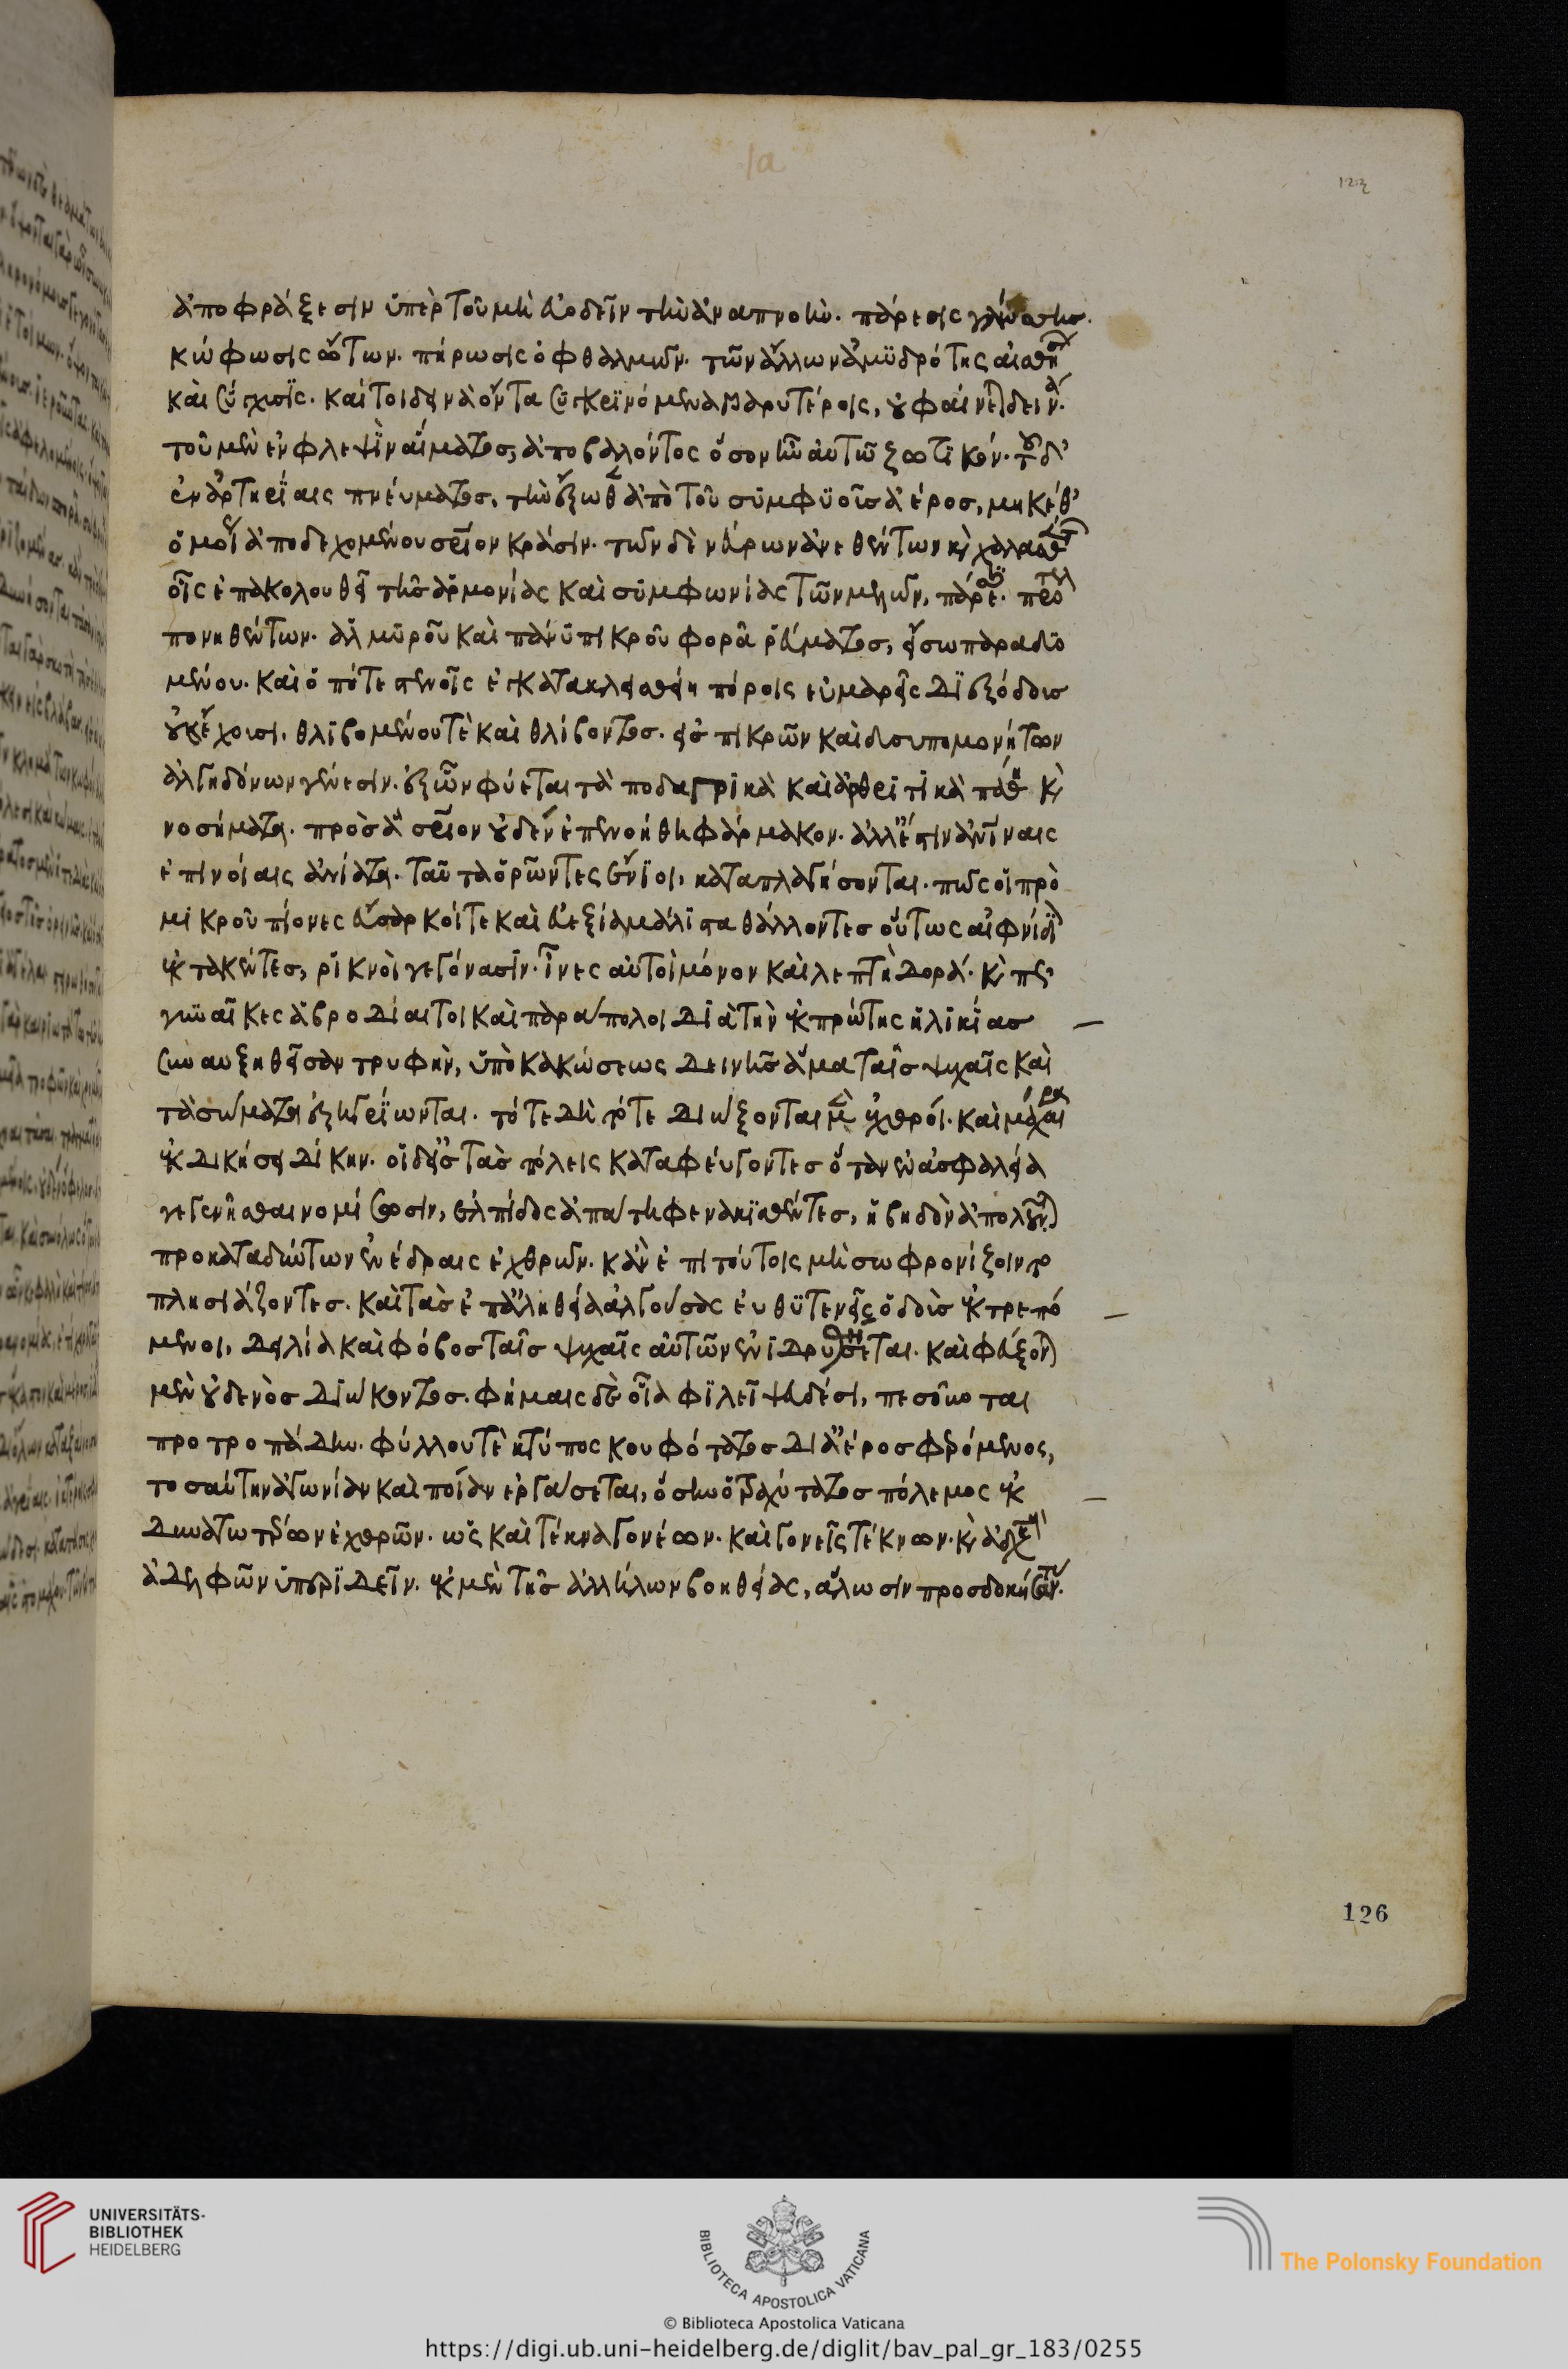 ἀποφράξεσιν ὑπὲρ τοῦ μὴ εὐοδεῖν τὴν ἀναπνοήν. πάρεσις γλώττης.
κώφωσις ὤτων. πήρωσις ὀφθαλμῶν. τῶν ἄλλων ἀμυδρότης αἰσθή
καὶ σύγχυσις. καίτοι δεινὰ ὄντα συγκρινόμενα βαρυτέροις, οὐ φαίνεται δεινά.
τοῦ μὲν ἐν φλεψὶν αἵματος, ἀποβαλόντος ὅσον ἦν αὐτῷ ζωτικόν. τοῦ δ'
ἐν ἀρτηρίαις πνεύματος, τὴν ἔξωθεν ἀπὸ τοῦ συμφυοῦς ἀέρος, μηκέθ'
ὁμοίως ἀποδεχομένου σωτήριον κρᾶσιν. τῶν δὲ νεύρων ἀνεθέντων καὶ χαλασθέντων
οἷς ἐπακολουθεῖ τῆς ἁρμονίας καὶ συμφωνίας τῶν μελῶν, πάρεσις.
πονηθέντων. ἁλμυροῦ καὶ πάνυ πικροῦ φορᾷ ῥεύματος, εἴσω παραδυο
μένου. καὶ ὁπότε στενοῖς ἐγκατακλεισθείη πόροις εὐμαρεῖς διεξόδους
οὐκ ἔχουσι, θλιβομένου τὲ καὶ θλίβοντος. εἰς πικρῶν καὶ δυσυπομονήτων
ἀλγηδόνων γένεσιν. ἐξ ὧν φύεται τὰ ποδαγρικὰ καὶ ἀρθριτικὰ πάθη καὶ
νοσήματα. πρὸς ἃ σωτήριον οὐδὲν ἐπενοήθη φάρμακον. ἀλλ' ἔστιν ἀνθρωπίναις
ἐπινοίαις ἀνίατα. ταῦτα ὁρῶντες ἔνιοι, καταπλαγήσονται. πῶς οἱ πρὸ
μικροῦ πίονες εὔσαρκοί τε καὶ εὐεξίᾳ μάλιστα θάλλοντες οὕτως αἰφνίδιον
ἐκτακέντες, ῥικνοὶ γεγόνασιν. ἶνες αὐτοὶ μόνον καὶ λεπτὴ δορά. καὶ πῶς
γυναῖκες ἁβροδίαιτοι καὶ παράπολοι διὰ τὴν ἐκ πρώτης ἡλικίας
συναυξηθεῖσαν τρυφὴν, ὑπὸ κακώσεως δεινῆς ἅμα ταῖς ψυχαῖς καὶ
τὰ σώματα ἐξηγρίωνται. τότε δὴ τότε διώξονται μὲν ἐχθροί. καὶ μάχαιρα
ἐκδικήσει δίκην. οἱ δ' εἰς τὰς πόλεις καταφεύγοντες ὅταν ἐν ἀσφαλείᾳ
γεγενῆσθαι νομίσωσιν, ἐλπίδος ἀπάτῃ φενακισθέντες, ἡβηδὸν ἀπολοῦνται
προκαταδύντων ἐνέδραις ἐχθρῶν. κἂν ἐπὶ τούτοις μὴ σωφρονίζοιντο
πλησιάζοντες. καὶ τὰς ἐπ' ἀλήθειαν ἀγούσας εὐθυτενεῖς ὁδοὺς ἐκτρεπό
μενοι, δειλία καὶ φόβος ταῖς ψυχαῖς αὐτῶν ἐνιδρυθήσεται. καὶ φεύξονται
μὲν οὐδενὸς διώκοντος. φήμαις δὲ οἷα φιλεῖ ψευδέσι, πεσοῦνται
προτροπάδην. φύλλου τὲ κτύπος κουφότατος δι' ἀέρος φερόμενος,
τοσαύτην ἀγωνίαν καὶ πτοίαν ἐργάσεται, ὅσην ὁ βαρύτατος πόλεμος ἐκ
δυνατωτάτων ἐχθρῶν. ὡς καὶ τέκνα γονέων. καὶ γονεῖς τέκνων. καὶ ἀδελφοὶ
ἀδελφῶν ὑπεριδεῖν. ἐκ μὲν τῆς ἀλλήλων βοηθείας, ἅλωσιν προσδοκήσαντες.
126
UNIVERSITÄTS-
BIBLIOTHEK
HEIDELBERG
BIBLIOTECA APOSTOLICA VATICANA
The Polonsky Foundation
© Biblioteca Apostolica Vaticana
https://digi.ub.uni-heidelberg.de/diglit/bav_pal_gr_183/0255